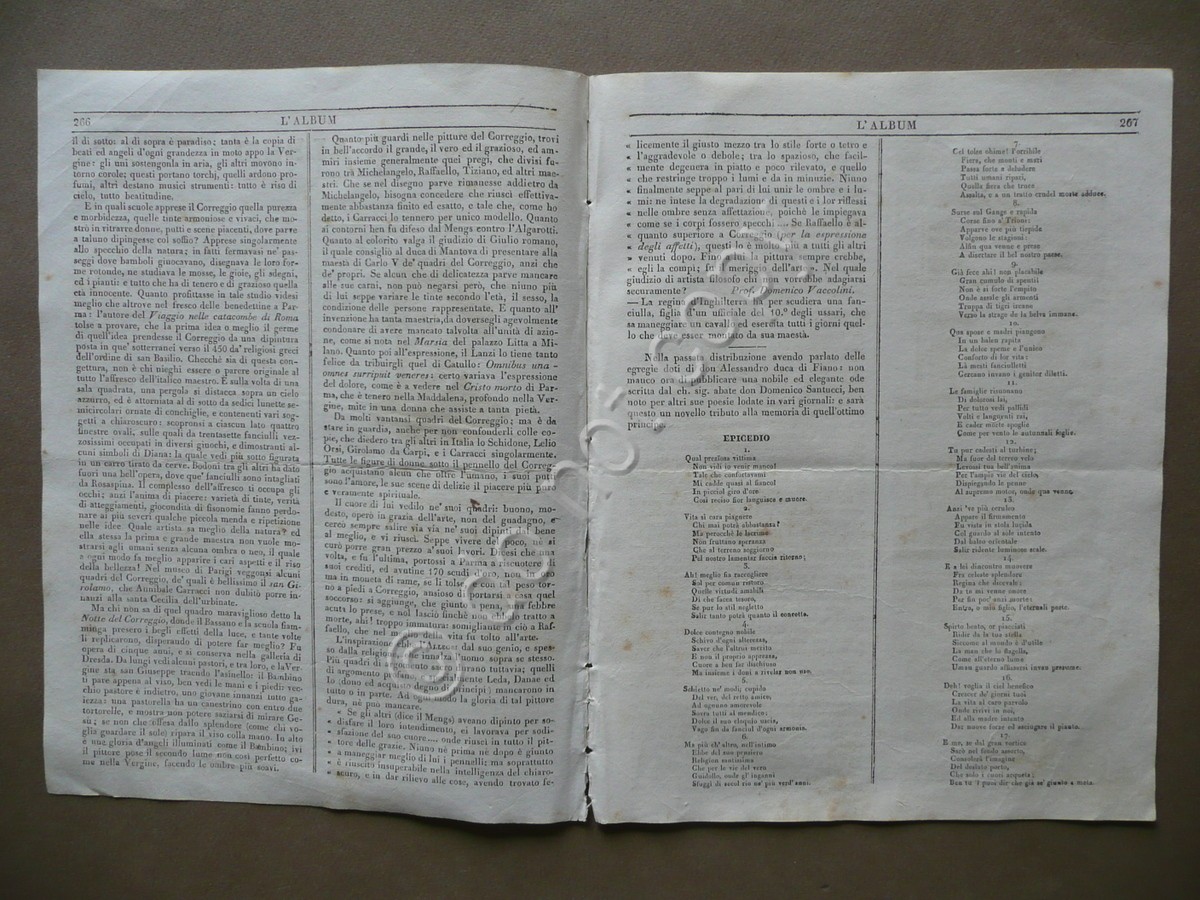 266
L'ALBUM
il di sotto: al di sopra è paradiso; tanta è la copia di
beati ed angeli d'ogni grandezza in moto appo la Ver-
gine: gli uni sostengonla in aria, gli altri movono in-
torno corole; questi portano torchj, quelli ardono pro-
fumi, altri destano musici strumenti: tutto è riso di
cielo, tutto beatitudine.
E in quali scuole apprese il Correggio quella purezza
e morbidezza, quelle tinte armoniose e vivaci, che mo-
strò in ritrarre donne, putti e scene piacenti, dove parve
a taluno dipingesse col soffio? Apprese singolarmente
allo specchio della natura; in fatti fermavasi ne' pas-
seggi dove bamboli giuocavano, disegnava le loro for-
me rotondo, ne studiava le mosse, le gioie, gli sdegni,
ed i pianti: e tutto che ha di tenero e di grazioso quella
età innocente. Quanto profittasse in tale studio videsi
meglio che altrove nel fresco delle benedettine a Par-
ma: l'autore del Viaggio nelle catacombe di Roma
tolse a provare, che la prima idea o meglio il germe
di quell'idea prendesse il Correggio da una dipintura
posta in que' sotterranei verso il 450 da' religiosi greci
dell'ordine di san Basilio. Checchè sia di questa con-
gettura, non è chi nieghi essere o parere originale al
tutto l'affresco dell'italico maestro. E sulla volta di una
sala quadrata, una pergola si distacca sopra un cielo
azzurro, ed è attorniata al di sotto da sedici lunette se-
micircolari ornate di conchiglie, e contenenti vari sog-
getti a chiaroscuro: scopronsi a ciascun lato quattro
finestre ovali, sulle quali da trentasette fanciulli vez-
zosissimi occupati in diversi giuochi, e dimostranti al-
cuni simboli di Diana: la quale vedi più sotto figurata
in un carro tirato da cerve. Bodoni tra gli altri ha dato
fuori una bell'opera, dove que' fanciulli sono intagliati
da Rosaspina. Il complesso dell'affresco ti occupa gli
occhi; anzi l'anima di piacere: varietà di tinte, verità
di atteggiamenti, giocondità di fisonomie fanno perdo-
nare ai più severi qualche piccola menda e ripetizione
nelle idee Quale artista sa meglio della natura? ed
ella stessa la prima e grande maestra non vuole mo-
strarsi agli umani senza alcuna ombra o neo, il quale
a ogni modo fa meglio apparire i cari aspetti e il riso
della bellezza! Nel museo di Parigi veggonsi alcuni
quadri del Correggio, de' quali è bellissimo il san Gi-
rolamo, che Annibale Carracci non dubitò porre in-
nanzi alla santa Cecilia dell'urbinate.
Ma chi non sa di quel quadro maraviglioso detto la
Notte del Correggio, donde il Bassano e la scuola fiam-
minga presero i begli effetti della luce, e tante volte
li replicarono, disperando di potere far meglio? Fu
opera di cinque anni, e si conserva nella galleria di
Dresda. Da lungi vedi alcuni pastori, e tra loro, e la Ver-
gine sta san Giuseppe traendo l'asinello: il Bambino
ti pare appena al viso, ben vedi le mani e i piedi: vec-
chio pastore è indietro, uno giovane innanzi tutto ga-
iezza: una pastorella ha un canestrino con entro due
tortorelle, e mostra non potere saziarsi di mirare Ge-
sù; se non che offesa dallo splendore (come chi vo-
glia guardare il sole) ripara il viso colla mano. In alto
è una gloria d'angeli illuminati come il Bambino; ivi
il pittore pose il secondo lume non così perfetto co-
me nella Vergine, facendo le ombre più soavi.
Quanto più guardi nelle pitture del Correggio, trovi
in bell'accordo il grande, il vero ed il grazioso, ed am-
miri insieme generalmente quei pregi, che divisi fu-
rono trà Michelangelo, Raffaello, Tiziano, ed altri mae-
stri. Che se nel disegno parve rimanesse addietro da
Michelangelo, bisogna concedere che riuscì effettiva-
mente abbastanza finito ed esatto, e tale che, come ho
detto, i Carracci lo tennero per unico modello. Quanto
ai contorni ben fu difeso dal Mengs contro l'Algarotti.
Quanto al colorito valga il giudizio di Giulio romano,
il quale consigliò al duca di Mantova di presentare alla
maestà di Carlo V de' quadri del Correggio, anzi che
de' propri. Se alcun che di delicatezza parve mancare
alle sue carni, non può negarsi però, che niuno più
di lui seppe variare le tinte secondo l'età, il sesso, la
condizione delle persone rappresentate. E quanto all'
invenzione ha tanta maestria, da doversegli agevolmente
condonare di avere mancato talvolta all'unità di azio-
ne, come si nota nel Marsia del palazzo Litta a Mi-
lano. Quanto poi all'espressione, il Lanzi lo tiene tanto
felice da tribuirgli quel di Catullo: Omnibus una
omnes surripuit veneres: certo variava l'espressione
del dolore, come è a vedere nel Cristo morto di Par-
ma, che è tenero nella Maddalena, profondo nella Ver-
gine, mite in una donna che assiste a tanta pietà.
Da molti vantansi quadri del Correggio; ma è da
stare in guardia, anche per non confonderli colle co-
pie, che diedero tra gli altri in Italia lo Schidone, Lelio
Orsi, Girolamo da Carpi, e i Carracci singolarmente.
Tutte le figure di donne sotto il pennello del Correg-
gio acquistano alcun che oltre l'umano, i suoi putti
sono l'amore, le sue scene di delizie il piacere più puro
e veramente spirituale.
Il cuore di lui vedilo ne' suoi quadri: buono, mo-
desto, operò in grazia dell'arte, non del guadagno, e
cercò sempre salire via via ne' suoi dipinti dal bene
al meglio, e vi riuscì. Seppe vivere del poco, nè si
curò porre gran prezzo a' suoi lavori. Dicesi che una
volta, e fu l'ultima, portossi a Parma a riscuotere di
suoi crediti, ed avutine 170 scudi d'oro, non in oro
ma in moneta di rame, se li tolse, e con tal peso tor-
no a piedi a Correggio, ansioso di portarsi a casa quel
soccorso: si aggiunge, che giunto appena, una febbre
acuta lo prese, e nol lasciò finchè non ebbelo tratto a
morte, ahi! troppo immatura: somigliante in ciò a Raf-
faello, che nel meglio della vita fu tolto all'arte.
L'inspirazione dal suo genio, e spes-
so dalla religione che innalza l'uomo sopra se stesso.
Più quadri di lui tuttavia; quelli
di argomento profano, segnatamente Leda, Danae ed
Io (dono ed acquisto degno di principi) mancarono in
tutto o in parte. Ad ogni modo la gloria di tal pittore
dura, nè può mancare.
« Se gli altri (dice il Mengs) aveano dipinto per so-
« disfare il loro intendimento, ei lavorava per sodi-
« sfazione del suo cuore.... onde riuscì in tutto il pit-
« tore delle grazie. Niuno nè prima nè dopo è giunto
« a maneggiar meglio di lui i pennelli; ma soprattutto
« è riuscito insuperabile nella intelligenza del chiaro-
« scuro, e in dar rilievo alle cose, avendo trovato fe-
L'ALBUM
267
« licemente il giusto mezzo tra lo stile forte o tetro e
« l'aggradevole o debole; tra lo spazioso, che facil-
« mente degenera in piatto e poco rilevato, e quello
« che restringe troppo i lumi e da in minuzie. Niuno
« finalmente seppe al pari di lui unir le ombre e i lu-
« mi: ne intese la degradazione di questi e i lor riflessi
« nelle ombre senza affettazione, poichè le impiegava
« come se i corpi fossero specchi .... Se Raffaello è al-
« quanto superiore a Correggio (per la espressione
« degli affetti), questi lo è molto più a tutti gli altri
« venuti dopo. Fino a lui la pittura sempre crebbe,
« egli la compì; fu il meriggio dell'arte ». Nel quale
giudizio di artista filosofo chi non vorrebbe adagiarsi
securamente? Prof. Domenico Vaccolini.
— La regina d'Inghilterra ha per scudiera una fan-
ciulla, figlia d'un ufficiale del 10.º degli ussari, che
sa maneggiare un cavallo ed esercita tutti i giorni quel-
lo che deve esser montato da sua maestà.
Nella passata distribuzione avendo parlato delle
egregie doti di don Alessandro duca di Fiano: non
manco ora di pubblicare una nobile ed elegante ode
scritta dal ch. sig. abate don Domenico Santucci, ben
noto per altri sue poesie lodate in vari giornali: e sarà
questo un novello tributo alla memoria di quell'ottimo
principe.
EPICEDIO
1.
Qual preziosa vittima
Non vidi io venir manco!
Tale che confortavami
Mi cadde quasi al fianco!
In picciol giro d'ore
Così reciso fior languisce e muore.
2.
Vita sì cara piagnere
Chi mai potrà abbastanza?
Ma perocchè le lacrime
Non fruttano speranza
Che al terreno soggiorno
Pel nostro lamentar faccia ritorno;
3.
Ah! meglio fia raccogliere
Sol per comun ristoro
Quelle virtudi amabili
Di che facea tesoro,
Se pur lo stil negletto
Salir tanto potrà quanto il concetto.
4.
Dolce contegno nobile
Schivo d'ogni alterezza,
Saver che l'altrui merito
E non il proprio apprezza,
Cuore a ben far dischiuso
Ma insieme i doni a rivelar non uso.
5.
Schietto ne' modi; cupido
Del ver, del retto amico,
Ad ognuno amorevole
Sovra tutti al mendico;
Dolce il suo eloquio uscia,
Vago fin da fanciul d'ogni armonia.
6.
Ma più ch' altro, nell'intimo
Ebbe del suo pensiero
Religion santissima
Che per le vie del vero
Guidollo, onde gl' inganni
Sfuggì di secol rio ne' più verd' anni.
7.
Col tolse ohime! l'orribile
Fiera, che monti e mari
Passa forte a deludere
Tutti umani ripari,
Quella fiera che truce
Assalta, e a un tratto crudel morte adduce.
8.
Surse sul Gange e rapida
Corse fino a' Trioni:
Apparve ove più tiepide
Volgono le stagioni:
Alfin qua venne e prese
A disertare il bel nostro paese.
9.
Già fece ahi! non placabile
Gran cumulo di spenti!
Non è sì forte l'empito
Onde assale gli armenti
Truppa di tigri ircane
Vagne la strage de le belve immane.
10.
Qua spose e madri piangono
In un balen rapita
La dolce speme e l'unico
Conforto di lor vita:
Là mesti fanciulletti
Cercano invano i genitor diletti.
11.
Le famiglie risuonano
Di dolorosi lai,
Per tutto vedi pallidi
Volti e languenti rai,
E cader miste spoglie
Come per vento le autunnali foglie.
12.
Tu pur cadesti al turbine;
Ma fuor del terreo velo
Levossi tua bell'anima
Per l'ampie vie del cielo,
Dispiegando le penne
Al supremo motor, onde qua venne.
13.
Anzi 've più cerulea
Appare il firmamento
Fu vista in stola lucida
Col guardo al sole intento
Dal balzo orientale
Salir ridente luminose scale.
14.
E a lei dincontro muovere
Fra celeste splendore
Regina che dicevale:
De la mi venne cuore
Per fin poc' anzi morte:
Entra, o mia figlia, l'eternali porte.
15.
Spirto beato, or piacciati
Bidir da la tua stella
Siccome al mondo è d'utile
La man che lo flagella,
Come all'eterno lume
Uman guardo affissarsi invan presume.
16.
Deh! voglia il ciel benefico
Crescer de' giorni tuoi
La vita al caro parvolo
Onde rivivi in noi,
Ed alla madre intento
Dar nuove forze ed asciugare il pianto.
17.
E me, se dal gran vortice
Sarò nel fondo assorto,
Consolerà l'imagine
Del desiato porto,
Che solo i cuori apposta;
Ben tu 'l puoi dir che già se' giunto a meta.
© comprovendolibri